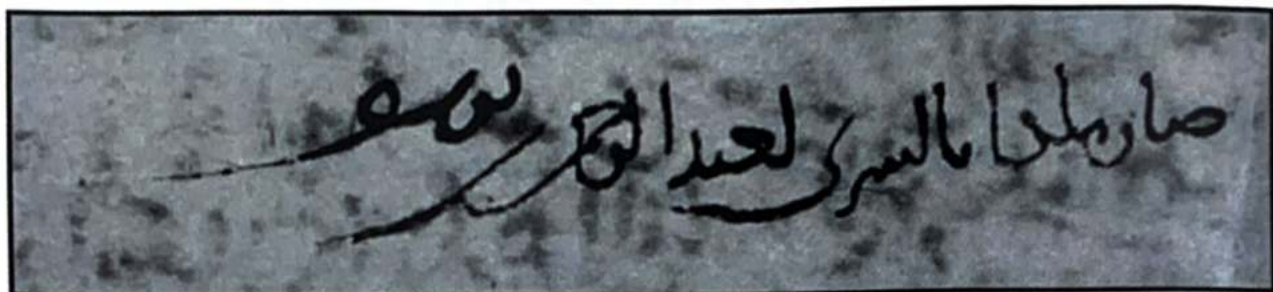 صار ملكا بالشرى لعبد الرحمن يوسف